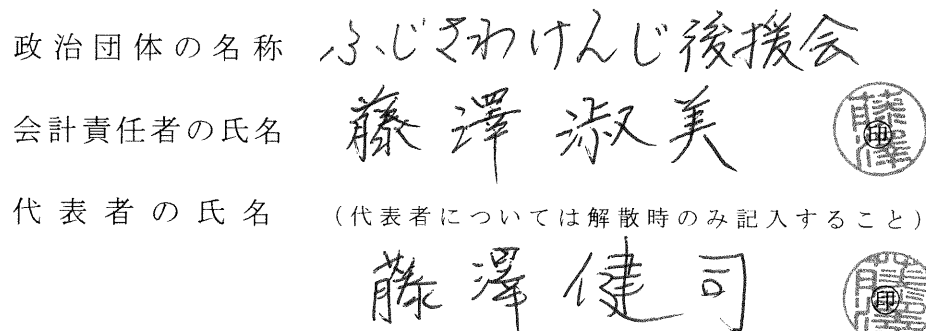 政治団体の名称 ふじさわけんじ後援会
会計責任者の氏名 藤澤淑美 藤澤 印
代表者の氏名 (代表者については解散時のみ記入すること)
藤澤健司 印